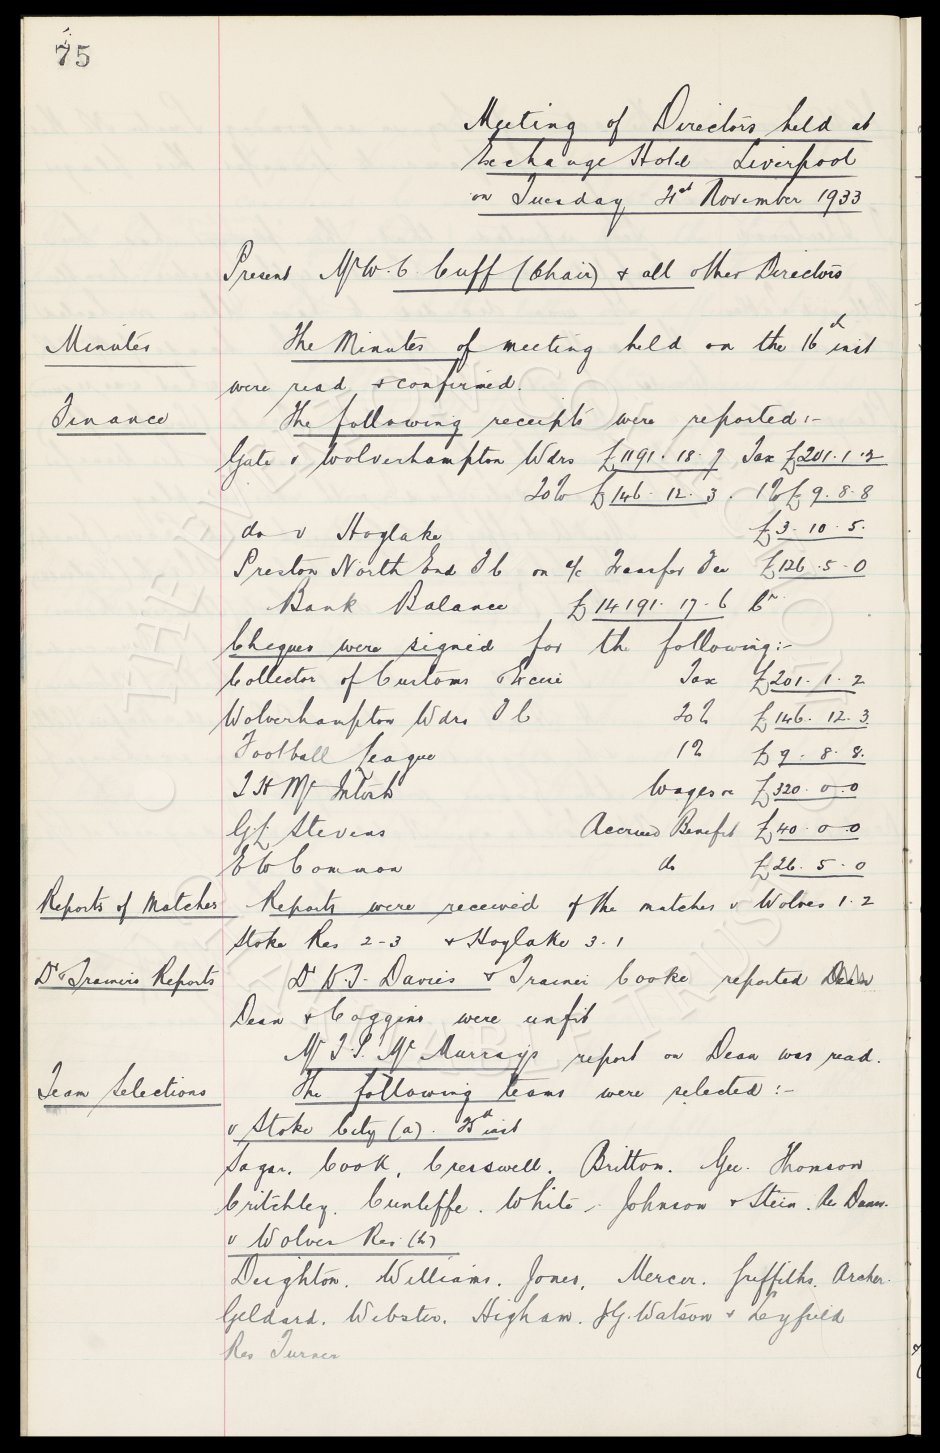 75
Meeting of Directors held at
Exchange Hotel Liverpool
on Tuesday 21st November 1933
Present Mr W. C. Cuff (Chair) & all other Directors
Minutes The Minutes of meeting held on the 16th inst
were read & confirmed.
Finance The following receipts were reported :-
Gate v Wolverhampton Wdrs £1191. 18. 7 Tax £201. 1. 2
20% £146. 12. 3. 1% £9. 8. 8
do v Hoylake £3. 10. 5.
Preston North End F C on a/c Transfer Fee £126. 5. 0
Bank Balance £14191. 17. 6 Cr
Cheques were signed for the following :-
Collector of Customs & Excise Tax £201. 1. 2
Wolverhampton Wdrs F C 20% £146. 12. 3
Football League 1% £9. 8. 8.
T H McIntosh Wages £320. 0. 0
G. Stevens Accrued Benefit £40. 0. 0
E W Common do £26. 5. 0
Reports of Matches Reports were received of the matches v Wolves 1. 2
Stoke Res 2-3 & Hoylake 3. 1
Dr & Trainers Reports Dr D. T. Davies & Trainer Cooke reported
Dean & Coggins were unfit
Mr T. P. McMurray's report on Dean was read.
Team Selections The following teams were selected :-
v Stoke City (a). 25th inst
Sagar. Cook, Cresswell. Britton. Gee. Thomson
Critchley. Cunliffe. White. Johnson & Stein. Res Dunn.
v Wolves Res (h)
Deighton. Williams. Jones, Mercer. Griffiths. Archer.
Geldard. Webster. Higham. J.G. Watson & Leyfield
Res Turner
THE EVERTON COLLECTION
CHARITABLE TRUST